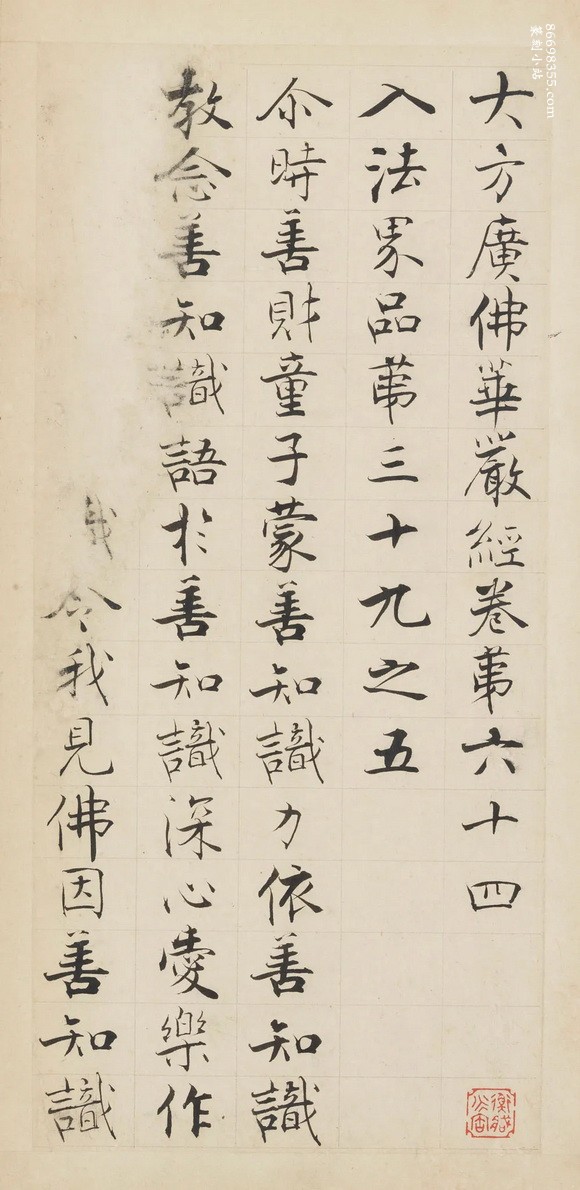 大方廣佛華嚴經卷第六十四
入法界品第三十九之五
尒時善財童子蒙善知識力依善知識
教念善知識語於善知識深心愛樂作
令我見佛因善知識
86698355.com
篆刻小站